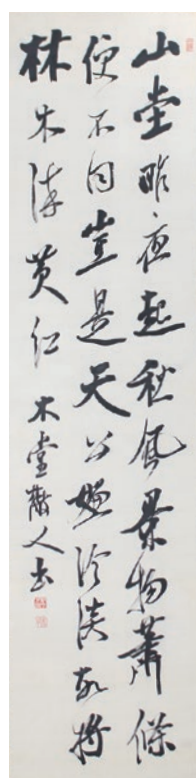 山堂昨夜起秋風景物蕭條
便不同豈是天公嫌冷淡故將
林木漆黄紅 木堂散人書